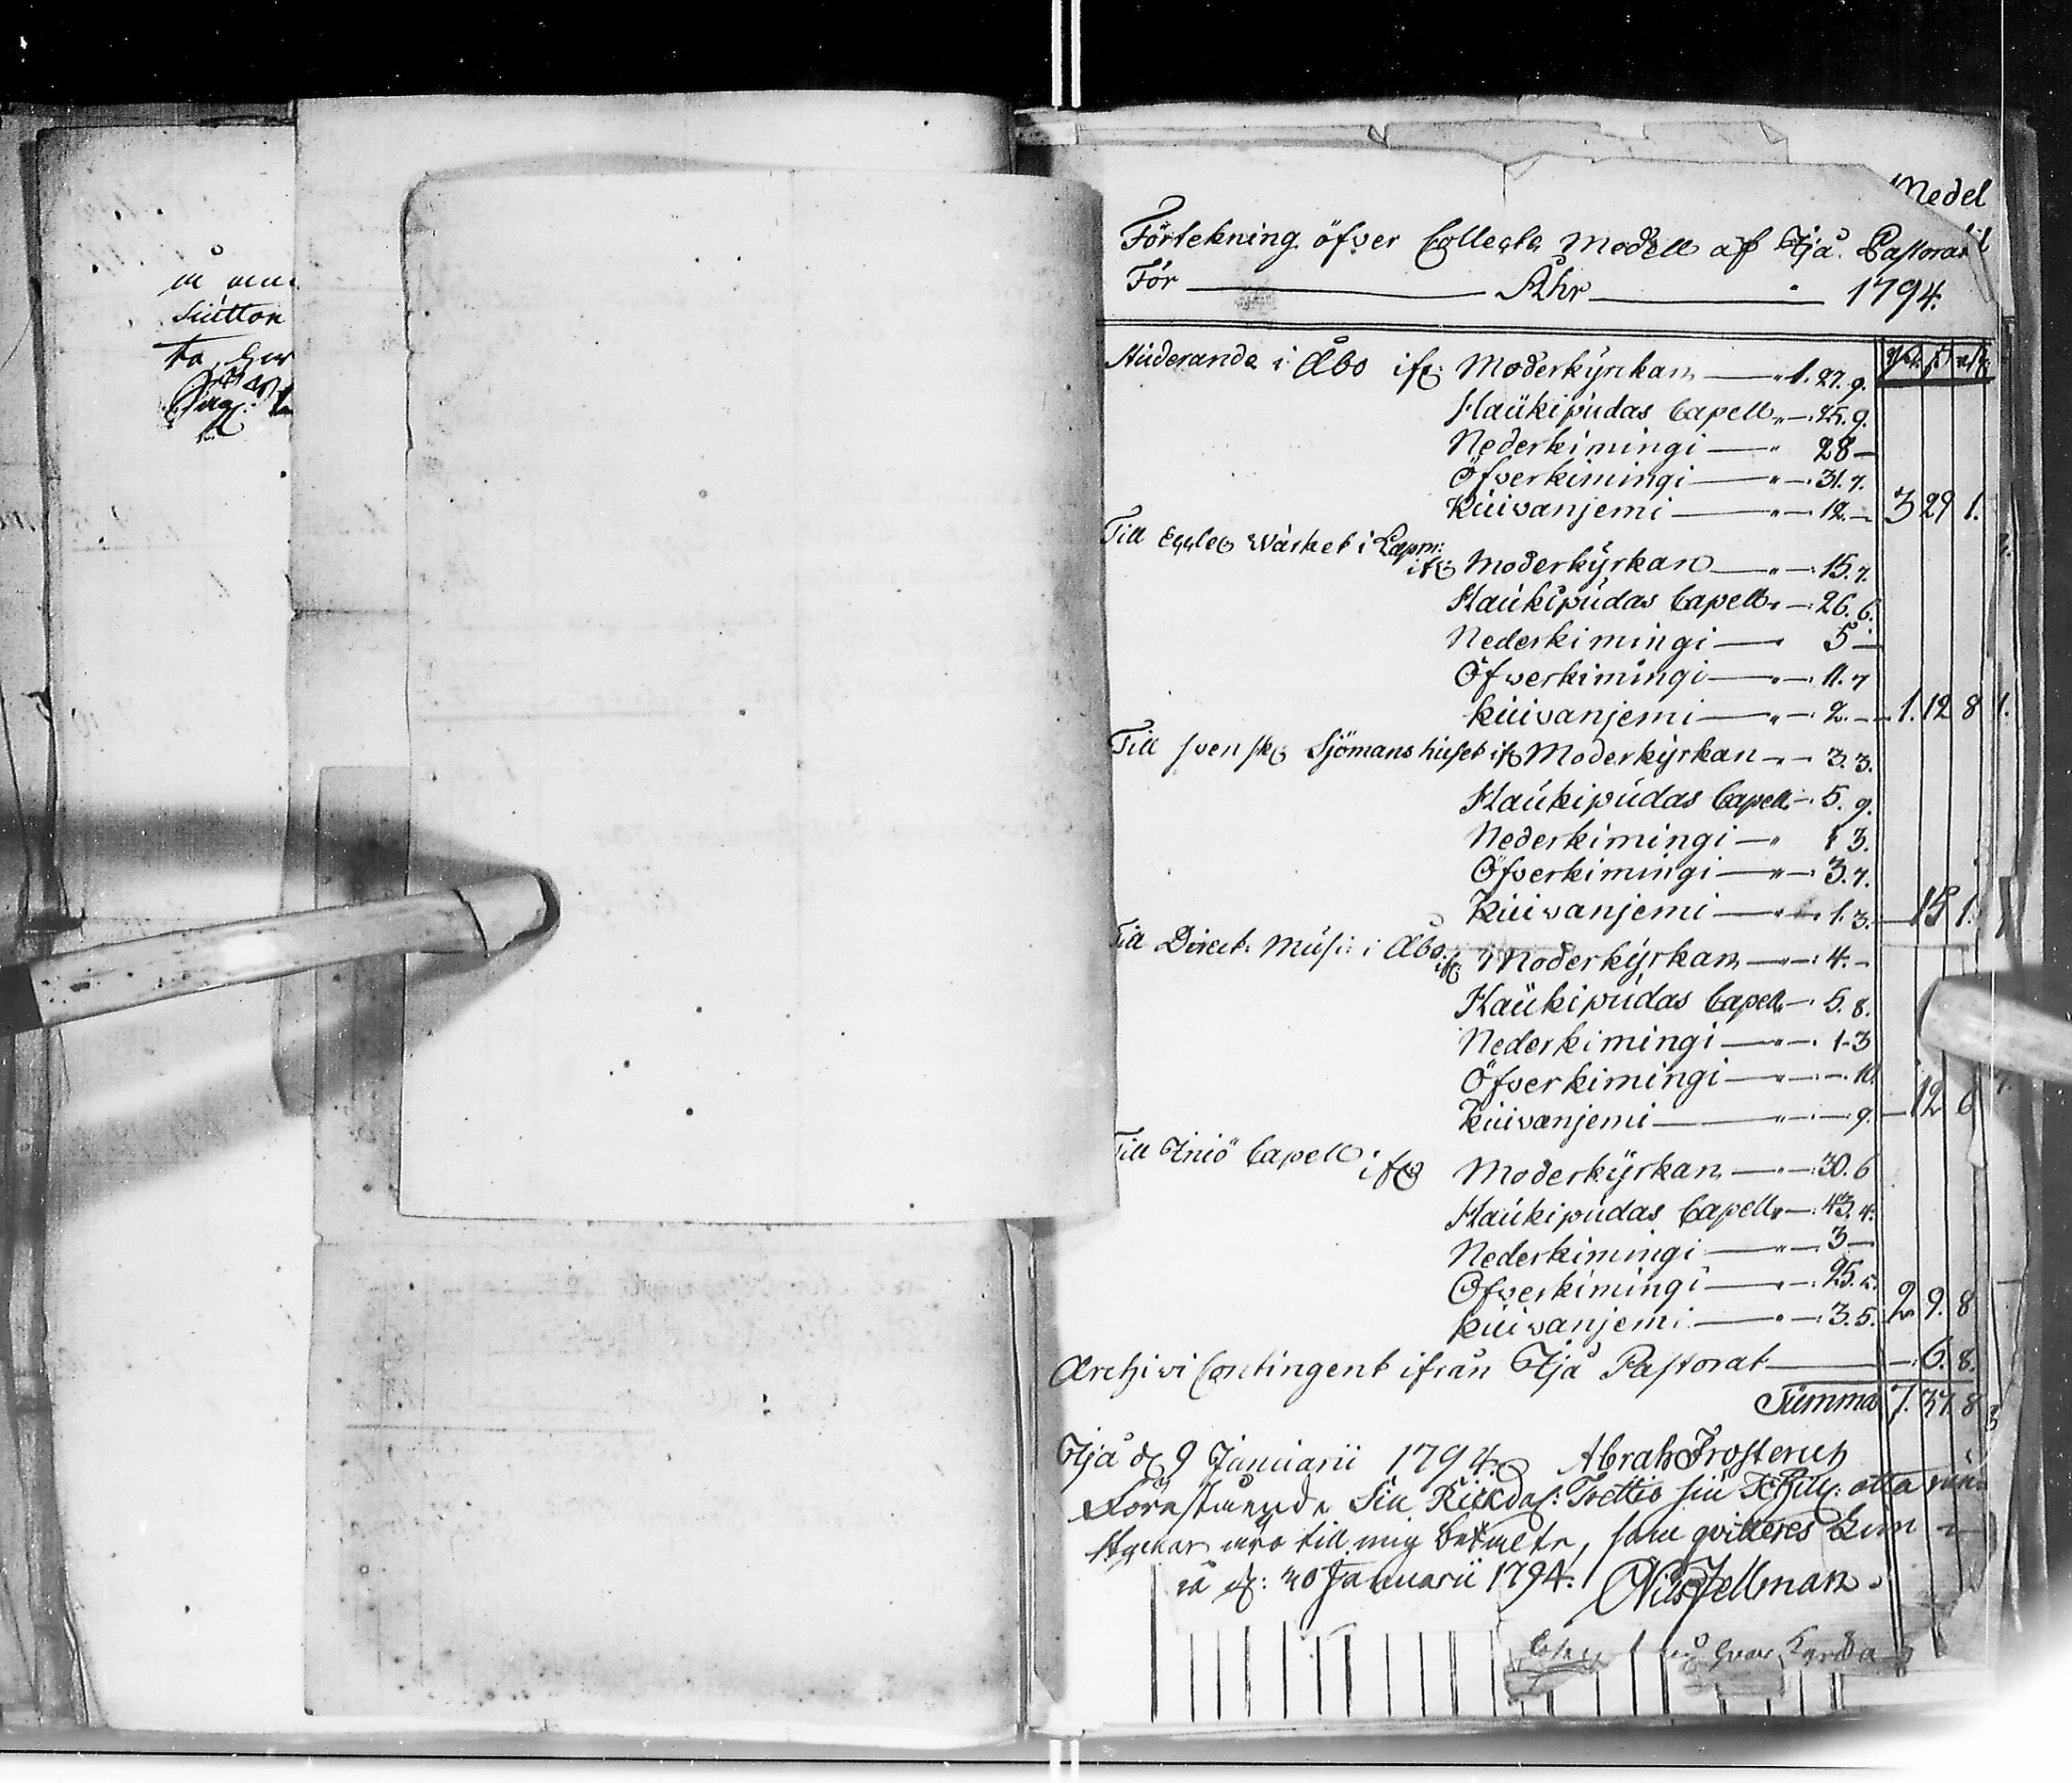 Medel
Förtekning öfver Collecte Medell af Ijå Pastorat
För Åhr 1794.
Studerande i Åbo ifr: Moderkÿrkan 1. 27. 9.
Haükipüdas Capell 25. 9.
Nederkimingi 28
Öfverkimingi 31. 7.
Küivanjemi 12. 3 29 1.
Till Eccles Wärket i Lapm:
ifr Moderkÿrkan 15. 7.
Haükipüdas Capell 26. 6.
Nederkimingi 5
Öfverkimingi 11. 7
Küivanjemi 2. 1. 12 8
Till svensk Sjömanshuset ifr Moderkÿrkan 3. 3.
Haükipüdas Capell 5. 9.
Nederkimingi 1 3.
Öfverkimingi 3. 7.
Küivanjemi 1. 3. 15 1.
Till Direct: Musi: i Åbo
ifr Moderkÿrkan 4.
Haükipüdas Capell 5. 8.
Nederkimingi 1. 3
Öfverkimingi 10
Küivanjemi 9. 12 6
Till Iniö Capell ifr Moderkÿrkan 30. 6
Haükipüdas Capell 43. 4.
Nederkimingi 3
Öfverkimingi 25. 5.
Küivanjemi 3. 5. 2 9. 8
Archivi Contingent ifrån Ijå Pastorat 6. 8.
Summa 7. 37. 8
Ijå d 9 Januarii 1794. Abrah Frosterus
Förestående Siu Riksda: Trettio siu Schill: otta run
stycken äro till mig betalte, som qvitteres Kim
å d: 30 Januarii 1794. Nils Fellman